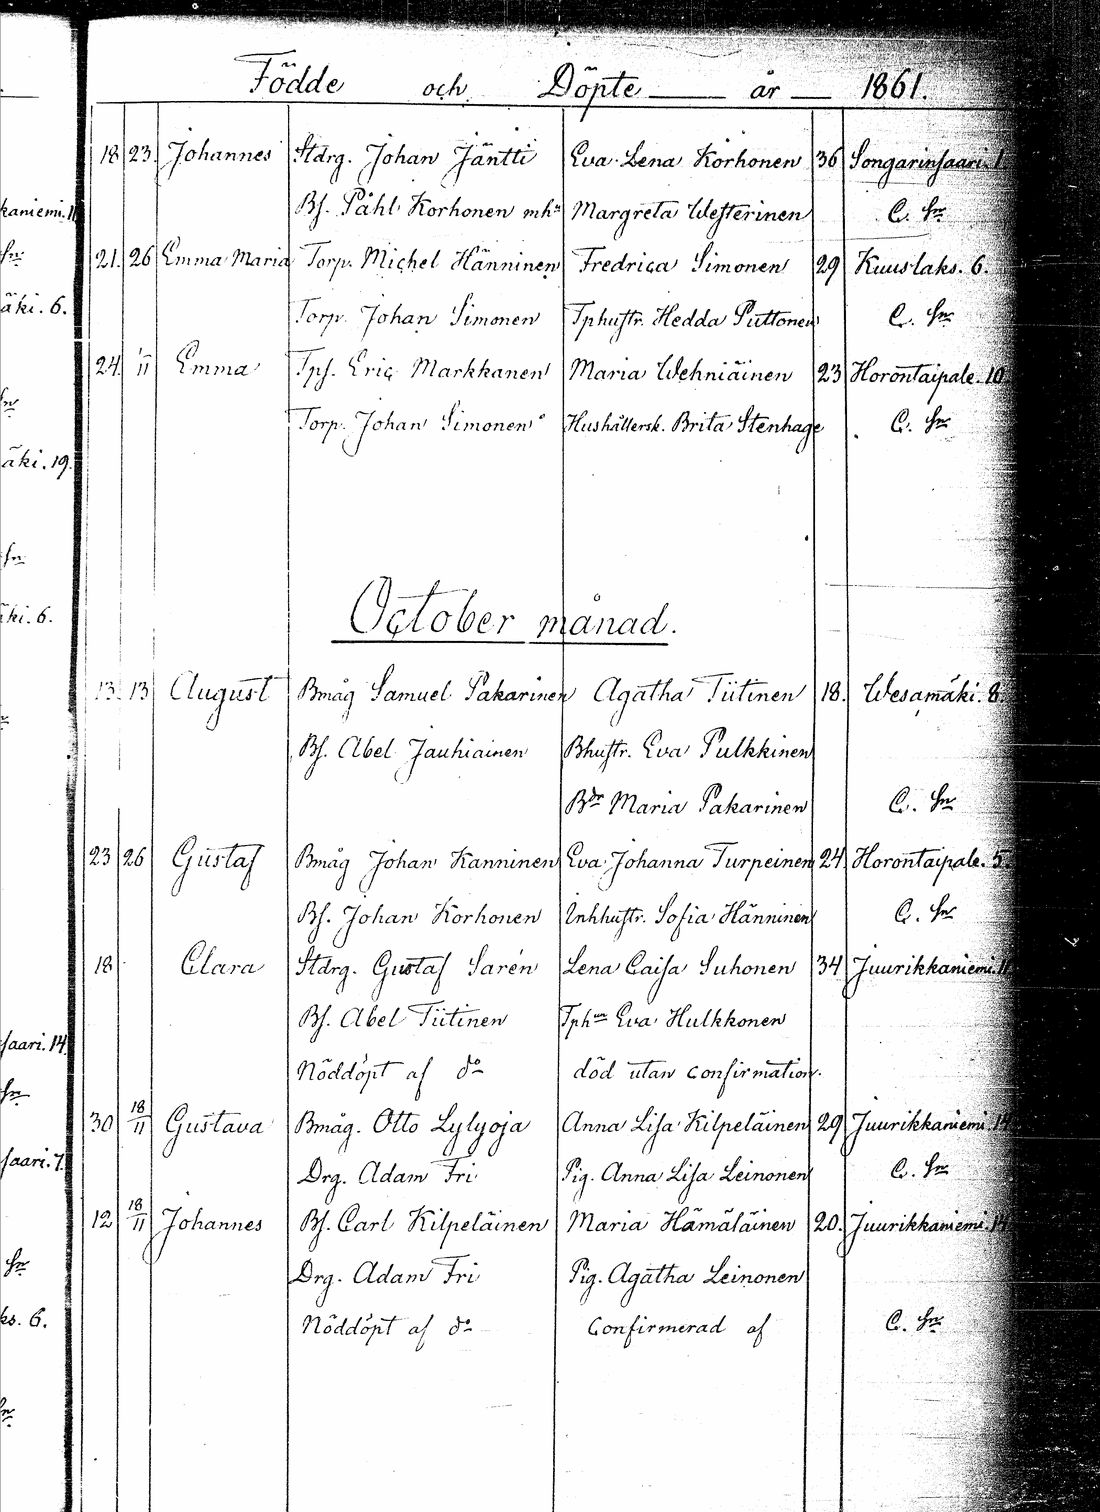 Födde och Döpte år 1861.
18 23. Johannes Stdrg. Johan Jäntti Eva Lena Korhonen 36 Songarinsaari. 1
kaniemi. 11 Bs. Påhl Korhonen mhu Margreta Westerinen C. Sn
Sn 21. 26 Emma Maria Torp. Michel Hänninen Fredrica Simonen 29 Kuuslaks. 6.
äki. 6. Torp. Johan Simonen Tphustr. Hedda Puttonen C. Sn
24. 1/11 Emma Tps. Eric Markkanen Maria Wehniäinen 23 Horontaipale. 10
Sn Torp. Johan Simonen Hushållersk. Brita Stenhage C. Sn
äki. 19.
Sn
äki. 6.
October månad.
13. 13 August Bmåg Samuel Pakarinen Agatha Tiitinen 18. Wesamäki. 8.
Bs. Abel Jauhiainen Bhustr. Eva Pulkkinen
Bdr Maria Pakarinen C. Sn
23 26 Gustaf Bmåg Johan Kanninen Eva Johanna Turpeinen 24 Horontaipale. 5.
Bs. Johan Korhonen Inhhustr. Sofia Hänninen C. Sn
18 Clara Stdrg. Gustaf Sarén Lena Caisa Suhonen 34 Juurikkaniemi.
saari. 14 Bs. Abel Tiitinen Tphun Eva Hulkkonen
Sn Nöddöpt af do död utan confirmation.
30 18/11 Gustava Bmåg. Otto Lylyoja Anna Lisa Kilpeläinen 29 Juurikkaniemi. 14
saari. 7. Drg. Adam Fri Pig. Anna Lisa Leinonen C. Sn
12 18/11 Johannes Bs. Carl Kilpeläinen Maria Hämäläinen 20. Juurikkaniemi. 14
Sn Drg. Adam Fri Pig. Agatha Leinonen
ks. 6. Nöddöpt af do Confirmerad af C. Sn
Sn.